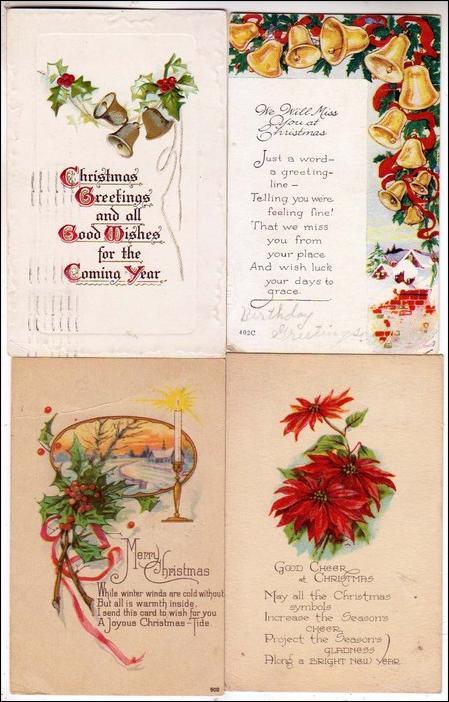 Christmas
Greetings
and all
Good Wishes
for the
Coming Year
We Will Miss
You at
Christmas
Just a word—
a greeting-
line—
Telling you we're
feeling fine!
That we miss
you from
your place
And wish luck
your days to
grace.
Birthday
Greetings
402C
Merry
Christmas
While winter winds are cold without
But all is warmth inside.
I send this card to wish for you
A Joyous Christmas-Tide.
902
GOOD CHEER
at CHRISTMAS
May all the Christmas
symbols
Increase the Season's
CHEER
Project the Season's
GLADNESS
Along a BRIGHT NEW YEAR.